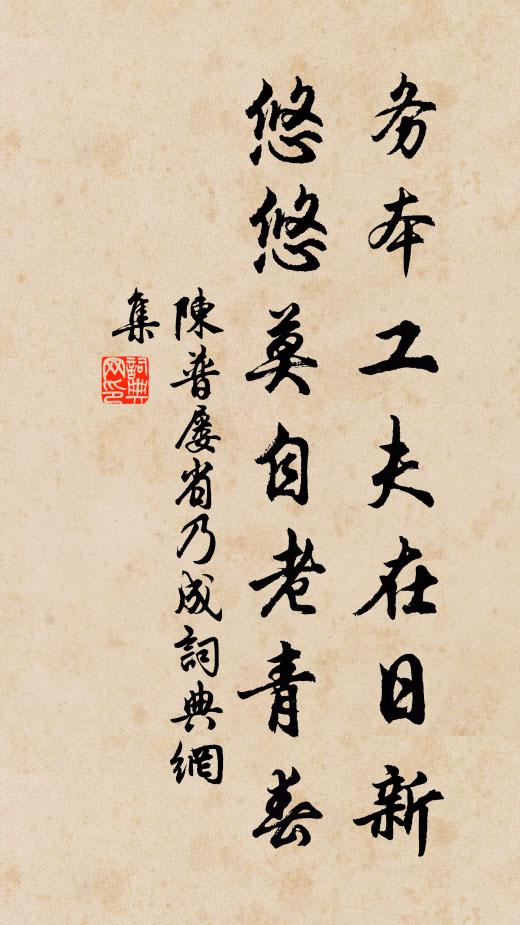 务本工夫在日新
悠悠莫自老青春
陳普屡省乃成詞典網
集
詞典网印